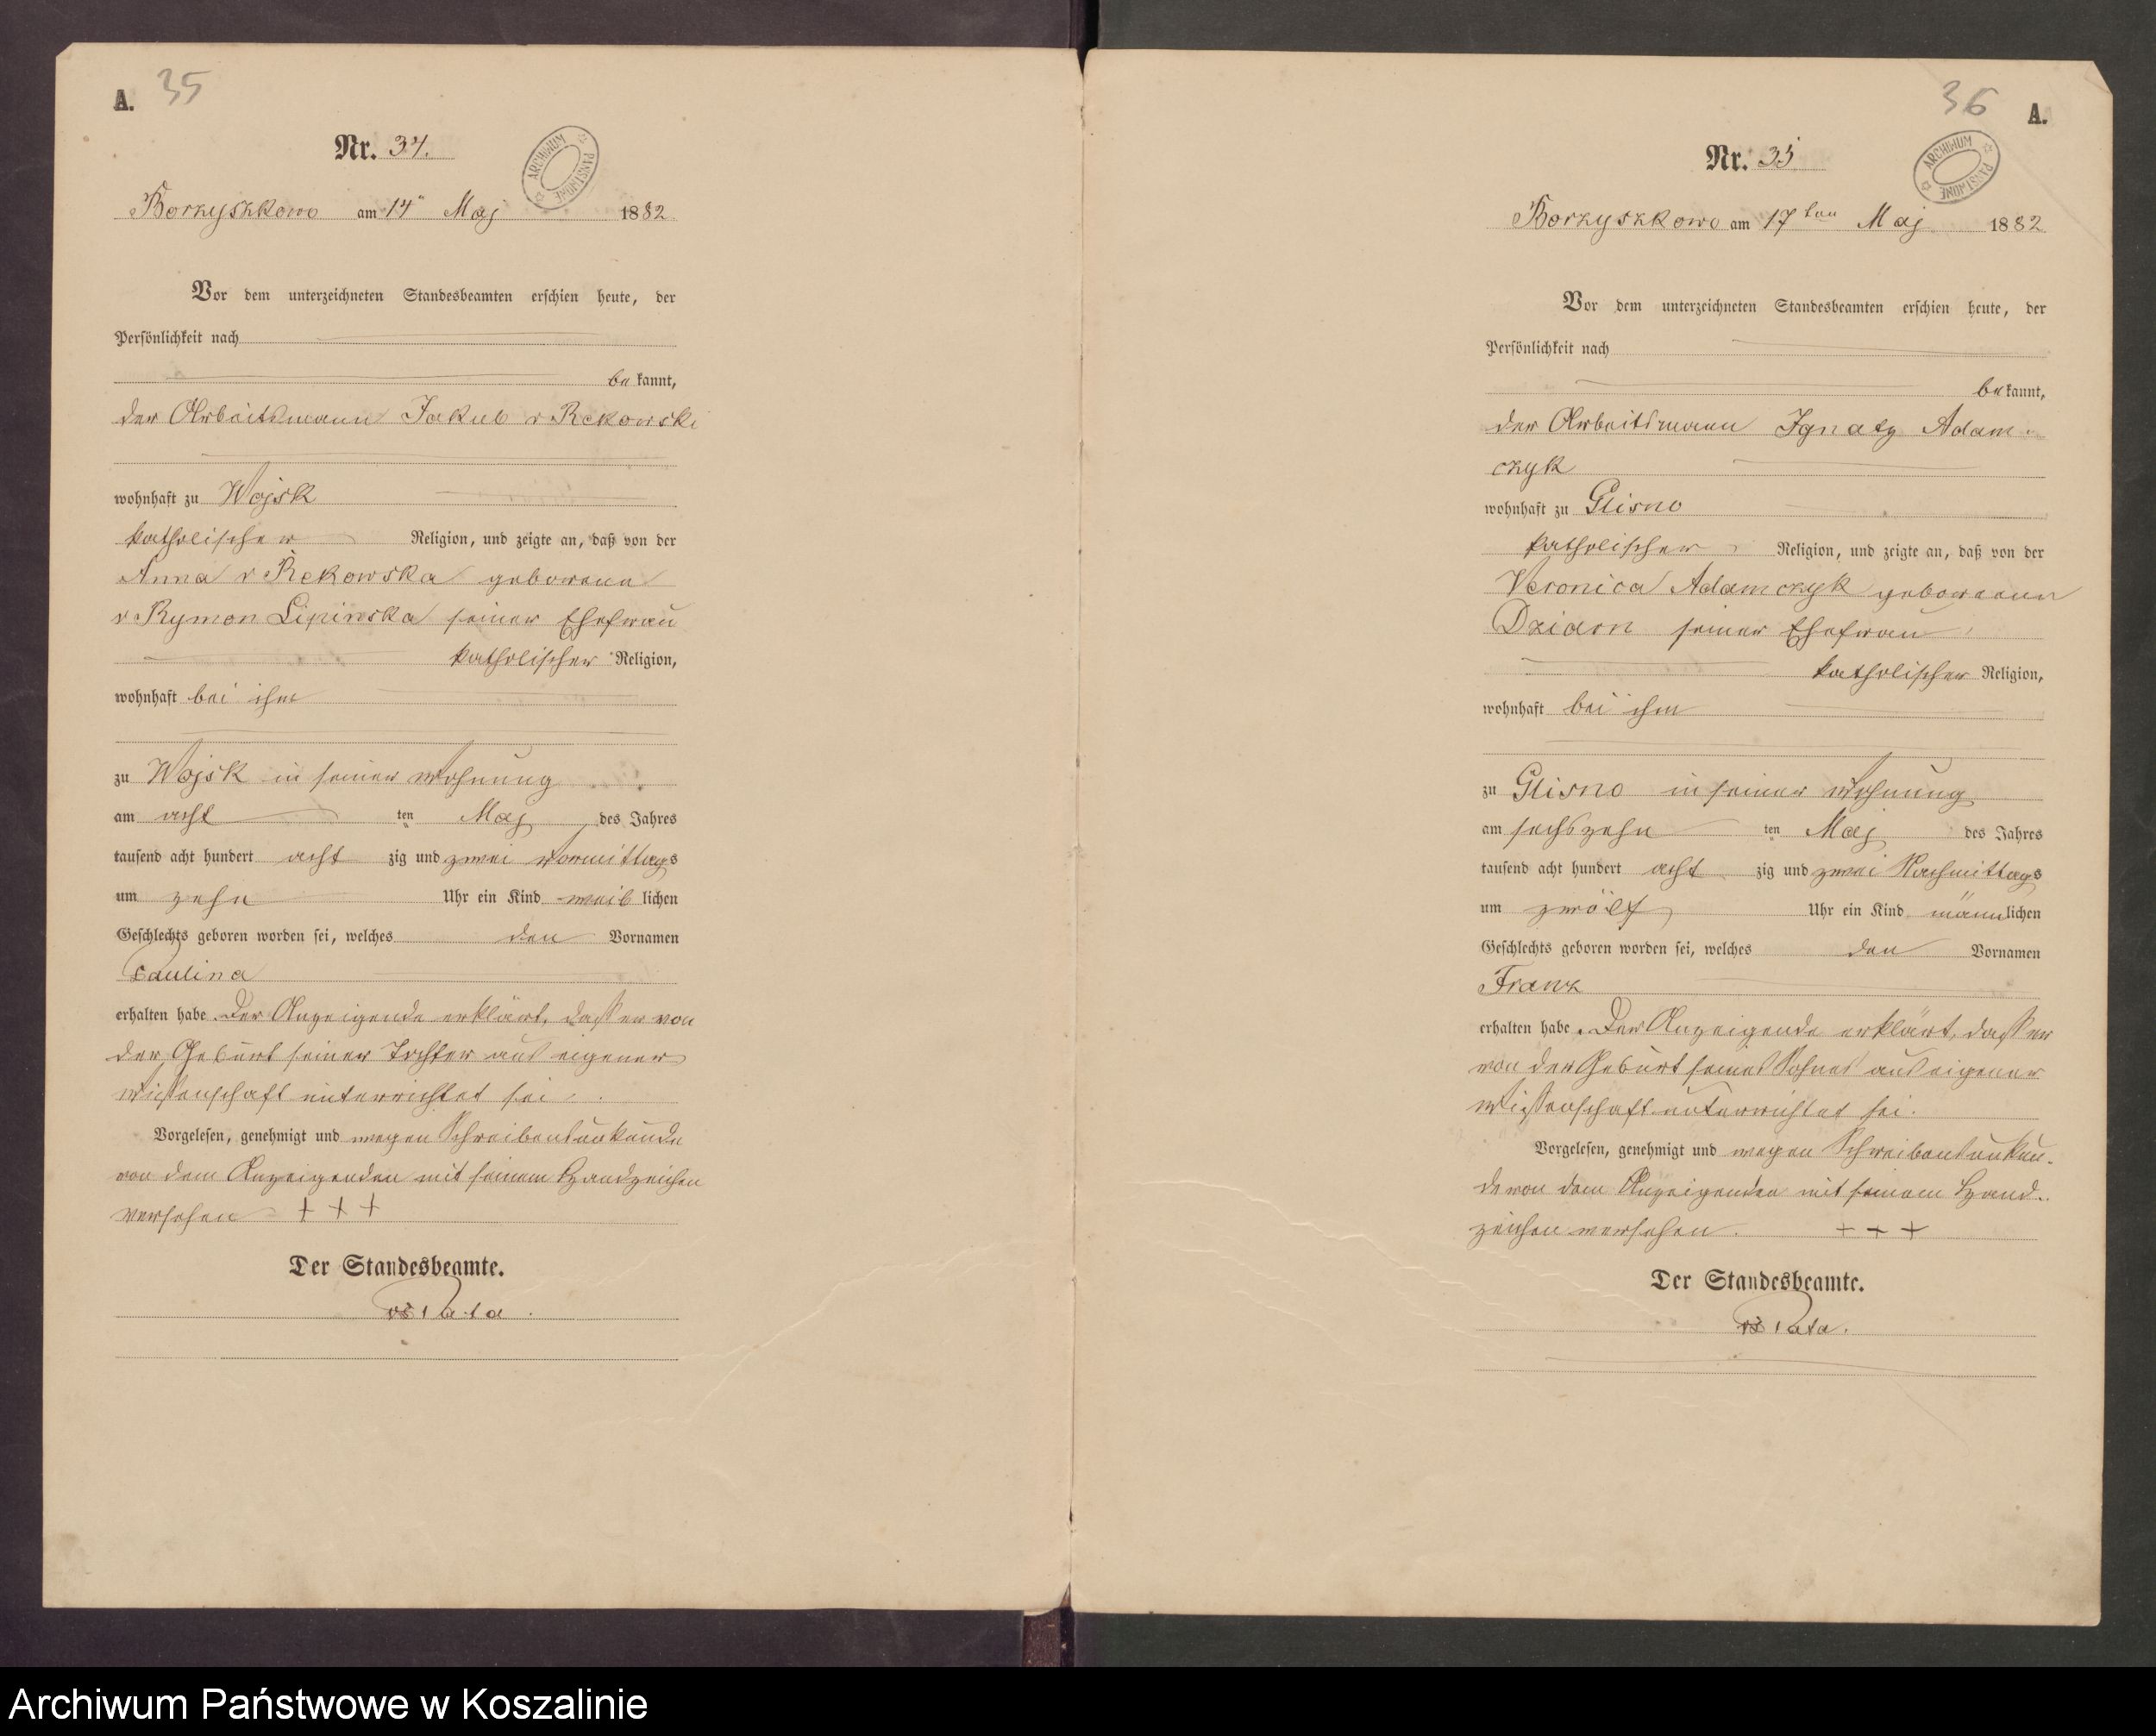 A. 35
Nr. 34.
ARCHIWUM PAŃSTWOWE
Borzyszkowo am 14" Maj 1882
Vor dem unterzeichneten Standesbeamten erschien heute, der
Persönlichkeit nach
bekannt,
der Arbeitsmann Jakub v Rekowski
wohnhaft zu Wojsk
katholischer Religion, und zeigte an, daß von der
Anna v Rekowska geborene
v Rymon Lipinska seiner Ehefrau
katholischer Religion,
wohnhaft bei ihm
zu Wojsk in seiner Wohnung
am acht ten Maj des Jahres
tausend acht hundert acht zig und zwei Vormittags
um zehn Uhr ein Kind weiblichen
Geschlechts geboren worden sei, welches den Vornamen
Paulina
erhalten habe. Der Anzeigende erklärt, daß er von
der Geburt seiner Tochter aus eigener
Wissenschaft unterrichtet sei.
Vorgelesen, genehmigt und wegen Schreibensunkunde
von dem Anzeigenden mit seinem Handzeichen
versehen + + +
Der Standesbeamte.
36 A.
Nr. 35
ARCHIWUM PAŃSTWOWE
Borzyszkowo am 17ten Maj 1882
Vor dem unterzeichneten Standesbeamten erschien heute, der
Persönlichkeit nach
bekannt,
der Arbeitsmann Ignatz Adam-
czyk
wohnhaft zu Glisno
katholischer Religion, und zeigte an, daß von der
Veronica Adamczyk geborenen
seiner Ehefrau
katholischer Religion,
wohnhaft bei ihm
zu Glisno in seiner Wohnung
am sechszehn ten Maj des Jahres
tausend acht hundert acht zig und zwei Nachmittags
um zwölf Uhr ein Kind männlichen
Geschlechts geboren worden sei, welches den Vornamen
Franz
erhalten habe. Der Anzeigende erklärt, daß er
von der Geburt seines Sohnes aus eigener
Wissenschaft unterrichtet sei.
Vorgelesen, genehmigt und wegen Schreibensunkun-
de von dem Anzeigenden mit seinem Hand-
zeichen versehen. + + +
Der Standesbeamte.
Archiwum Państwowe w Koszalinie